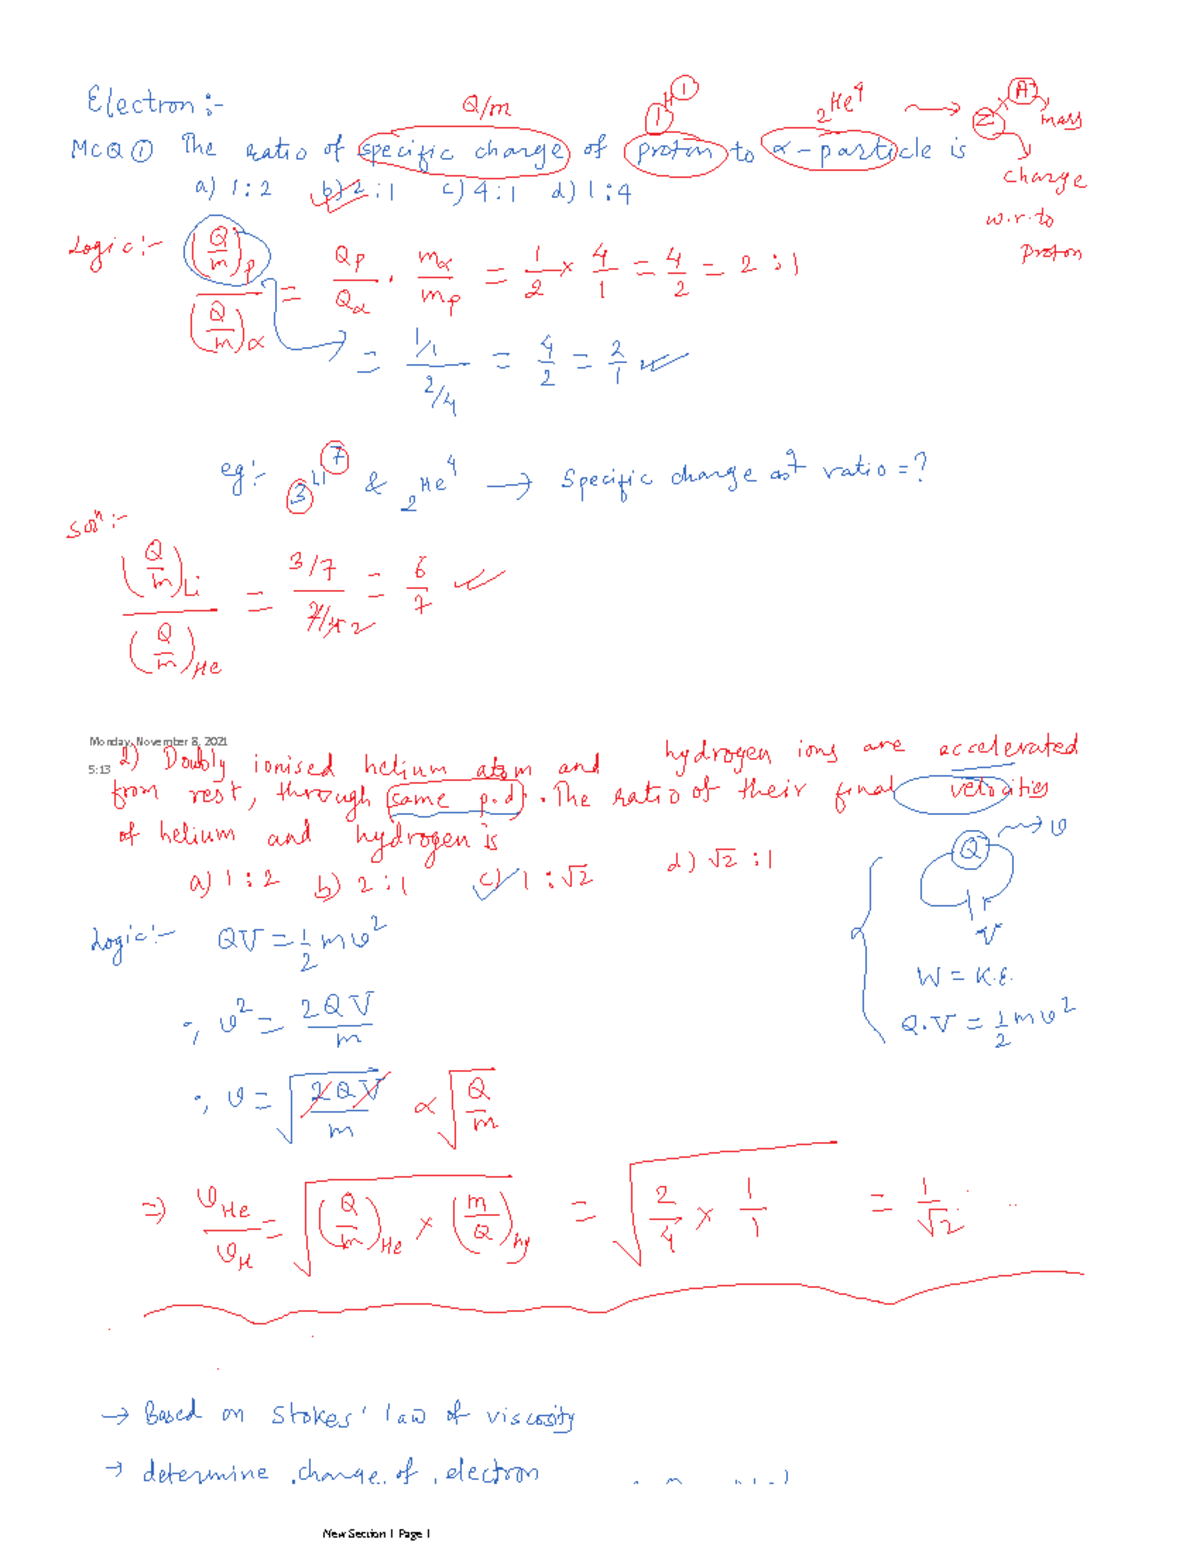 Electron :-
Q/m
₁H¹
₂He⁴ → Z A mass
charge
w.r.to
proton
MCQ ① The ratio of specific charge of proton to α-particle is
a) 1:2 b) 2:1 c) 4:1 d) 1:4
Logic:- (Q/m)p / (Q/m)α = Qp/Qα · mα/mp = 1/2 × 4/1 = 4/2 = 2:1
= 1/1 / 2/4 = 4/2 = 2/1
eg:- ₃Li⁷ & ₂He⁴ → Specific charge ratio = ?
Solⁿ:-
(Q/m)Li / (Q/m)He = 3/7 / 2/4 2 = 6/7
Monday, November 8, 2021
5:13
2) Doubly ionised helium atom and hydrogen ions are accelerated
from rest, through same p.d. The ratio of their final velocities
of helium and hydrogen is
a) 1:2 b) 2:1 c) 1:√2 d) √2:1
Q → v
V
W = K.E.
Q.V = 1/2 mv²
Logic:- QV = 1/2 mv²
∴ v² = 2QV/m
∴ v = √(2QV/m) α √(Q/m)
⇒ vHe/vH = √((Q/m)He × (m/Q)hy) = √(2/4 × 1/1) = 1/√2
→ Based on Stokes' law of viscosity
→ determine charge of electron
New Section 1 Page 1